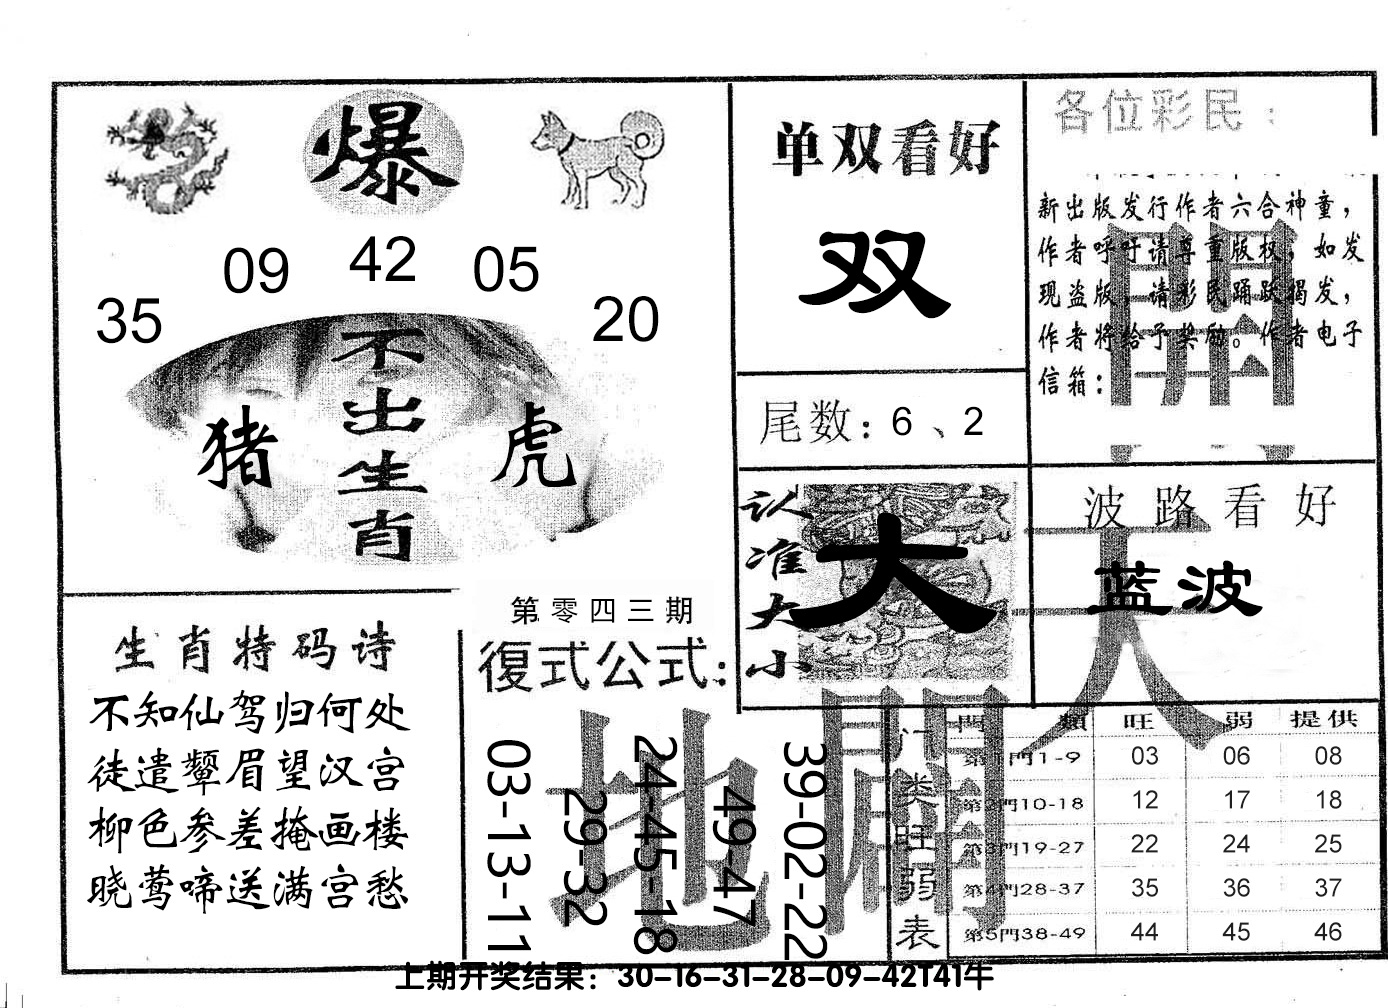 爆
35
09
42
05
20
不出生肖
猪
虎
生肖特码诗
不知仙驾归何处
徒遣颦眉望汉宫
柳色参差掩画楼
晓莺啼送满宫愁
第零四三期
復式公式:
03-13-11
29-32
24-45-18
49-47
39-02-22
单双看好
双
尾数: 6、2
认准大小
大
各位彩民:
新出版发行作者六合神童,
作者呼吁请尊重版权,如发
现盗版,请彩民踊跃揭发,
作者将给予奖励。作者电子
信箱:
波路看好
蓝波
天
地
開
門类旺弱表
門類 旺 弱 提供
第1門1-9 03 06 08
第2門10-18 12 17 18
第3門19-27 22 24 25
第4門28-37 35 36 37
第5門38-49 44 45 46
上期开奖结果：30-16-31-28-09-42T41牛